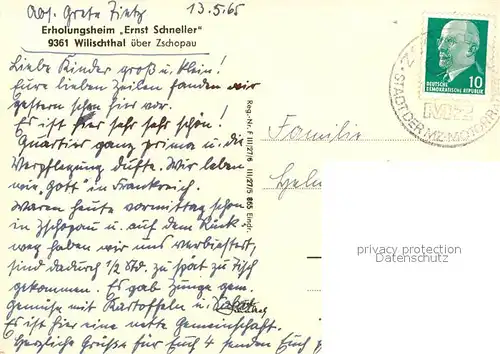 Abs. Grete Zietz 13.5.65
Erholungsheim „Ernst Schneller"
9361 Wilischthal über Zschopau
Liebe Kinder groß u. klein!
Eure lieben Zeilen fanden wir
gestern schon hier vor.
Es ist hier sehr sehr schön!
Quartier ganz prima u. die
Verpflegung dufte. Wir leben
wie „Gott" in Frankreich.
Waren heute vormittag schon
in Zschopau u. auf dem Rück-
weg haben wir uns verbiestert,
sind dadurch 1/2 Std. zu spät zu Tisch
gekommen. Es gab Zunge gem.
Gemüse mit Kartoffeln u.
Es ist hier eine nette Gemeinschaft.
Herzliche Grüße für Euch 4 senden Euch
Reg.-Nr. F III/27/6 III/27/5 865 Eindr.
Familie
DEUTSCHE
DEMOKRATISCHE REPUBLIK
10
STADT DER MZ-MOTORR
MZ
privacy protection
Datenschutz